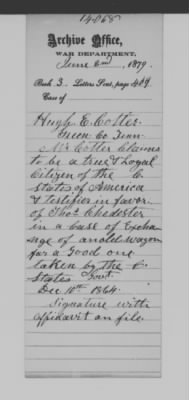 14,068
Archive Office,
WAR DEPARTMENT,
June 2nd, 1879.
Book 3. Letters Sent, page 449
Case of
Hugh E. Cotter.
Green Co Tenn
Mr Cotter Claims
to be a true & Loyal
Citizen of the C
States of America
& Testifies in favor
of Thos Chedester
in a Case of Excha
nge of an old wagon
for a Good one
taken by the C
States Govt.
Dec 10th 1864.
Signature with
Affidavit on file.